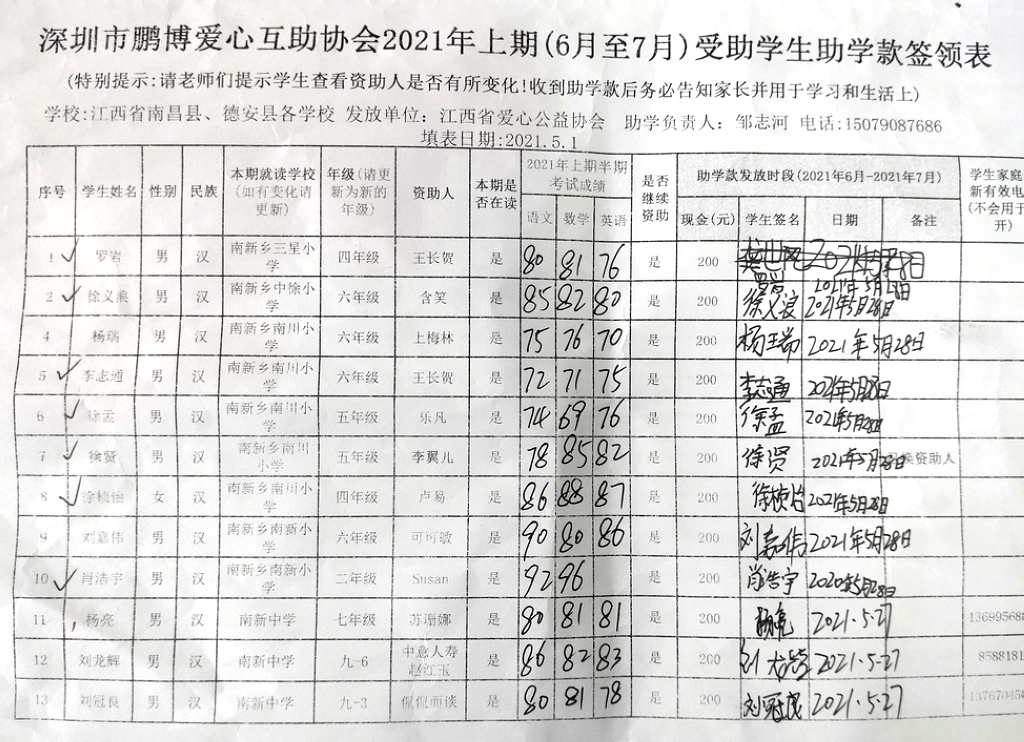 深圳市鹏博爱心互助协会2021年上期(6月至7月)受助学生助学款签领表
(特别提示:请老师们提示学生查看资助人是否有所变化!收到助学款后务必告知家长并用于学习和生活上)
学校:江西省南昌县、德安县各学校 发放单位: 江西省爱心公益协会 助学负责人: 邹志河 电话:15079087686
填表日期:2021.5.1
序号 学生姓名 性别 民族 本期就读学校(如有变化请更新) 年级(请更新为新的年级) 资助人 本期是否在读 2021年上期半期考试成绩 语文 数学 英语 是否继续资助 助学款发放时段(2021年6月-2021年7月) 现金(元) 学生签名 日期 备注 学生家庭 新有效电 (不会用于 开)
1 罗岩 男 汉 南新乡三星小学 四年级 王长贺 是 80 81 76 是 200 2021年5月28日
2 徐义浪 男 汉 南新乡中徐小学 六年级 含笑 是 85 82 80 是 200 徐义浪 2021年5月28日
4 杨瑞 男 汉 南新乡南川小学 六年级 上梅林 是 75 76 70 是 200 杨瑞 2021年5月28日
5 李志通 男 汉 南新乡南川小学 六年级 王长贺 是 72 71 75 是 200 李志通 2021年5月28日
6 徐孟 男 汉 南新乡南川小学 五年级 乐凡 是 74 69 76 是 200 徐孟 2021年5月28日
7 徐贤 男 汉 南新乡南川小学 五年级 李翼儿 是 78 85 82 是 200 徐贤 2021年5月28日 换资助人
8 徐桢怡 女 汉 南新乡南川小学 四年级 卢易 是 86 88 87 是 200 徐桢怡 2021年5月28日
9 刘嘉伟 男 汉 南新乡南新小学 六年级 可可敏 是 90 80 86 是 200 刘嘉伟 2021年5月28日
10 肖浩宇 男 汉 南新乡南新小学 二年级 Susan 是 92 96 是 200 肖浩宇 2020年5月28日
11 杨亮 男 汉 南新中学 七年级 苏珊娜 是 80 81 81 是 200 杨亮 2021.5.27 13699568
12 刘龙辉 男 汉 南新中学 九-6 中意人寿赵红玉 是 86 82 83 是 200 刘龙辉 2021.5.27 8588181
13 刘冠良 男 汉 南新中学 九-3 侃侃而谈 是 80 81 78 是 200 刘冠良 2021.5.27 13767045